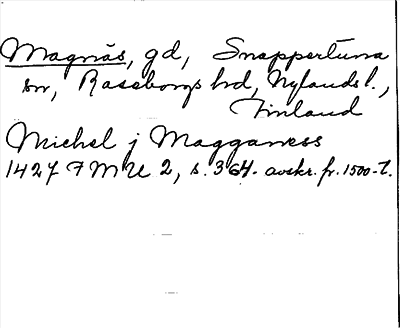 Magnäs, gd, Snappertuna
sn, Raseborgs hd, Nylands l.,
Finland
Michel j Magganess
1427 FMU 2, s. 364. avskr. fr. 1500-t.